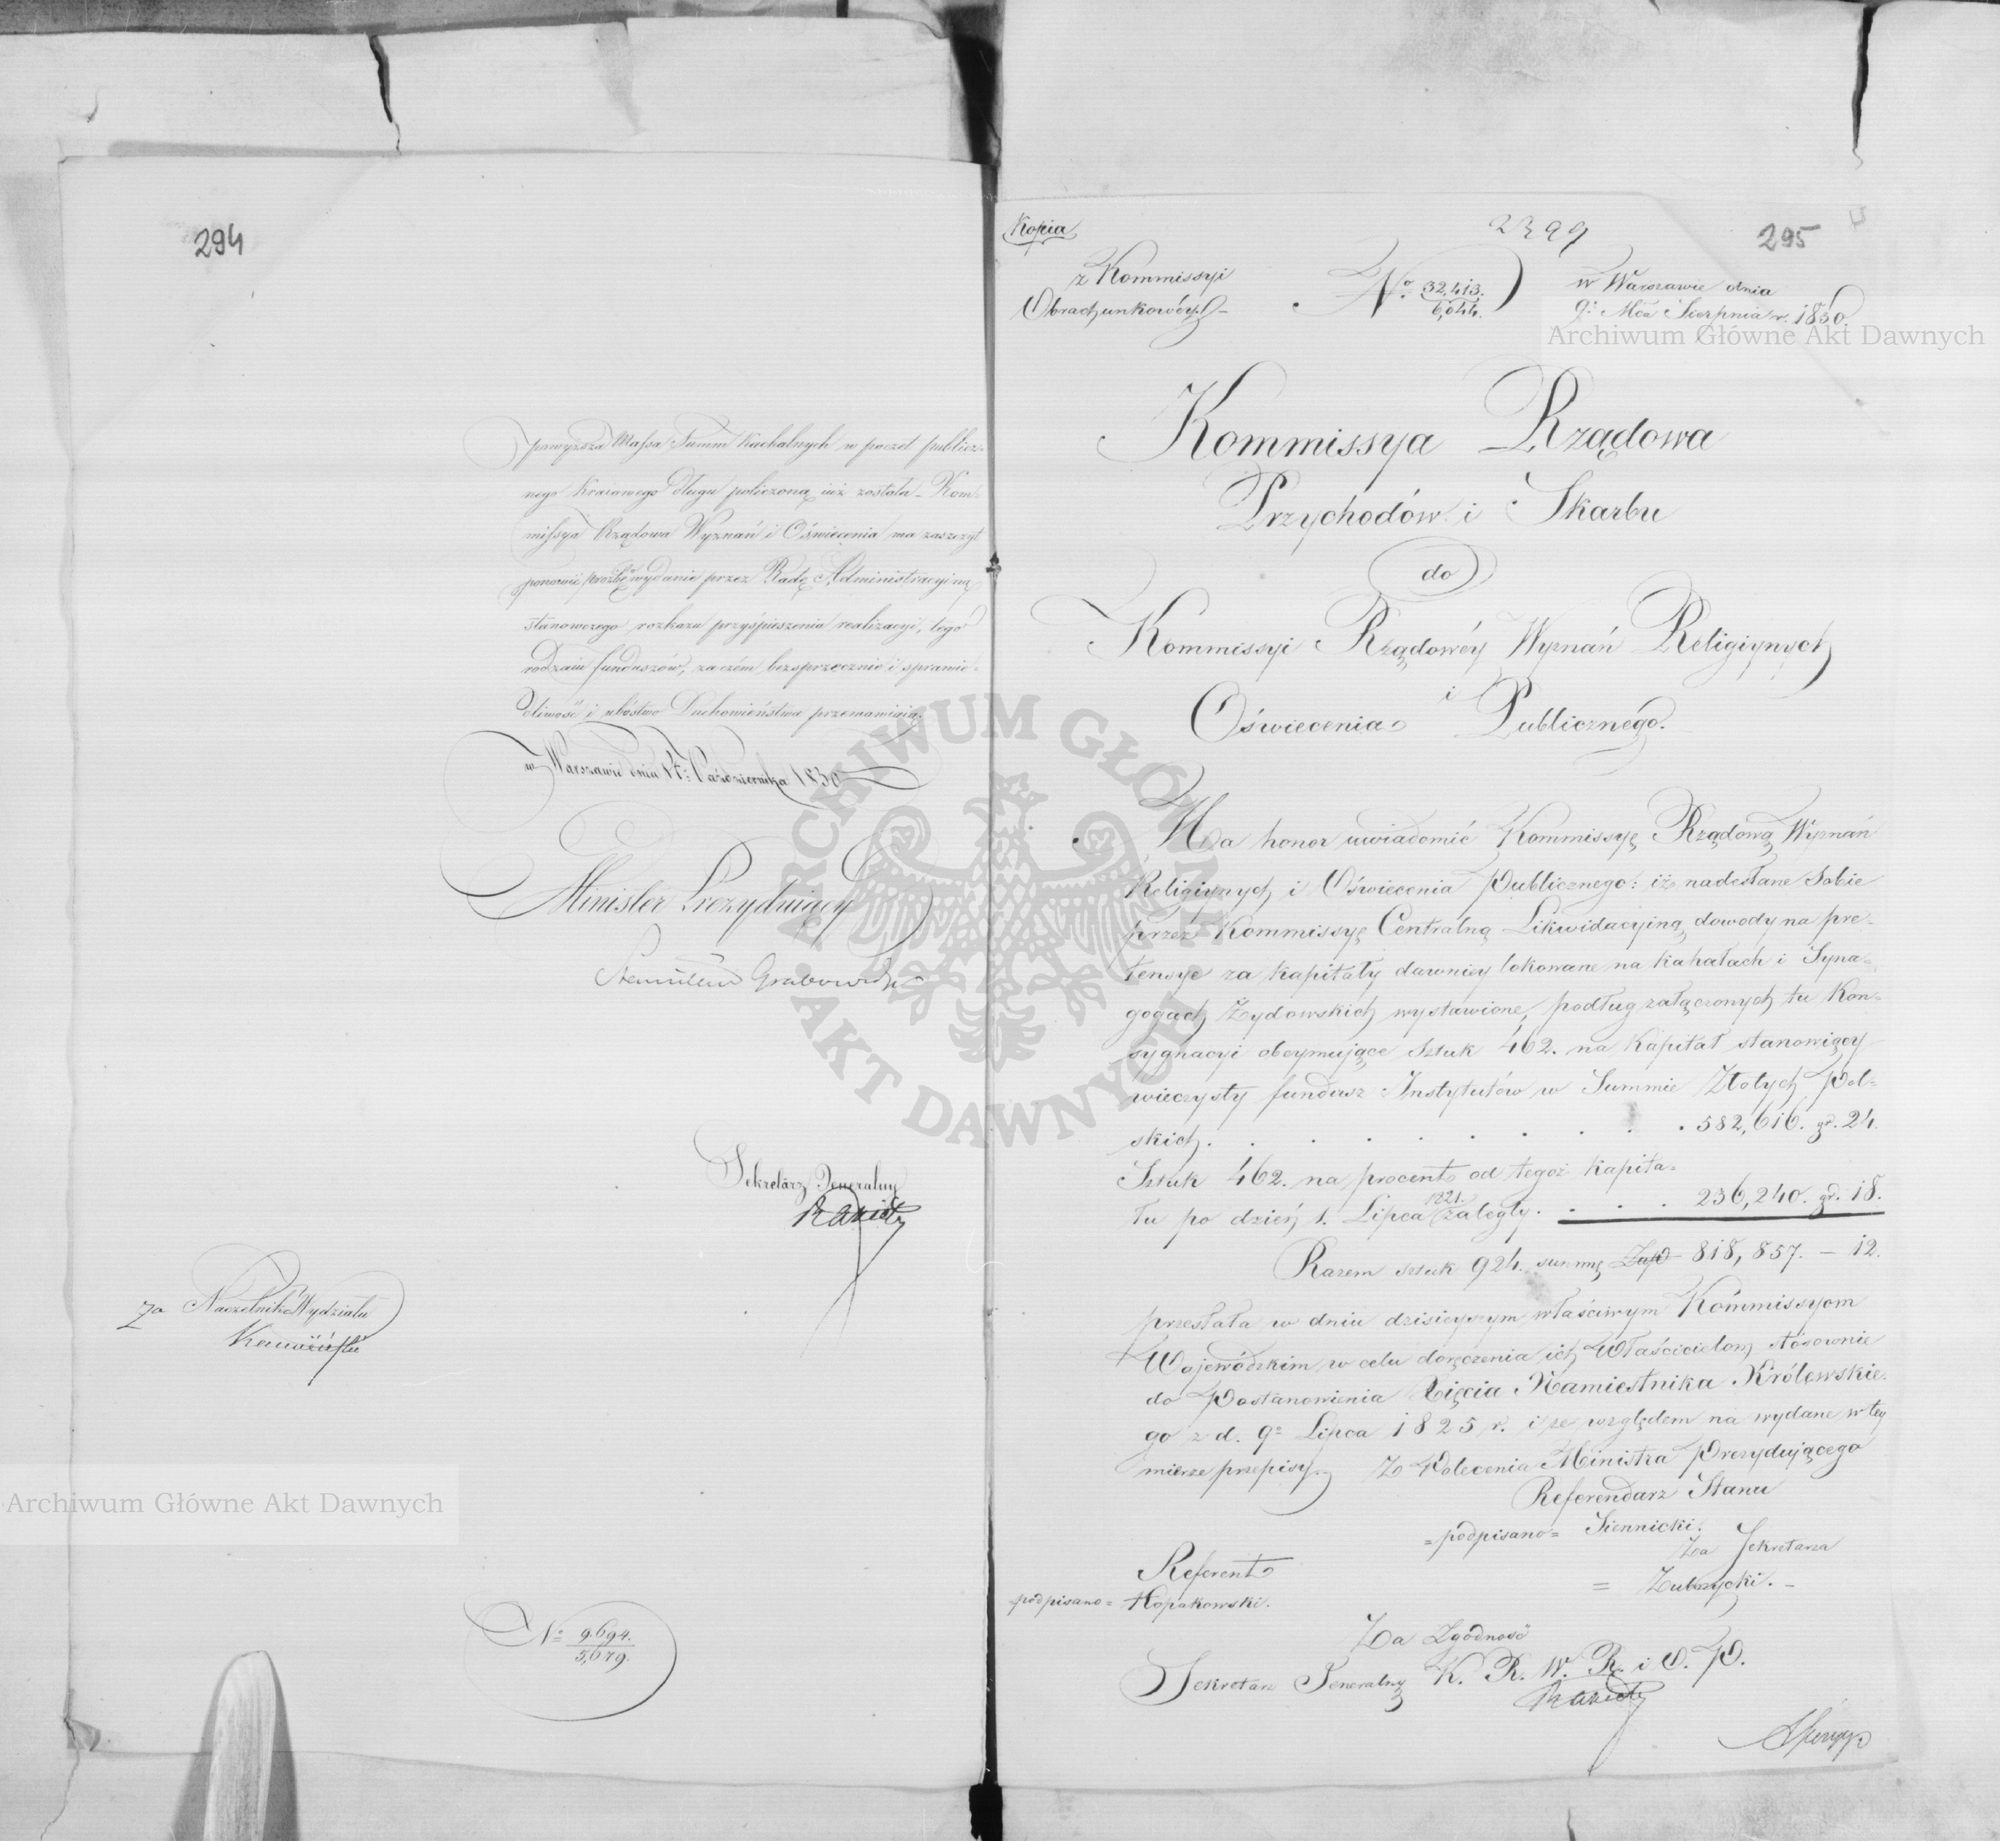 294
powyższa Massa Summ Kachalnych w poczet publicz-
nego Kraiowego długu policzoną iuż została - Kom-
missya Rządowa Wyznań i Oświecenia ma zaszczyt
ponowić prożbę wydanie przez Radę Administracyiną
stanowczego rozkazu przyśpieszenia realizacyi, tego
rodzaiu funduszów, za czém bezsprzecznie i sprawie-
dliwość i ubóstwo Duchowieństwa przemawiaią.
w Warszawie dnia 14: Października 1830
Minister Prezyduiący
Stanisław Grabowski
Sekretarz Jeneralny
Za Naczelnika Wydziału
No 9.694.
5,679.
Kopia
2399
295
z Kommissyi
Obrachunkowéy
No. 32,413.
6,044.
w Warszawie dnia
9: Mca Sierpnia r. 1830.
Kommissya Rządowa
Przychodów i Skarbu
do
Kommissyi Rządowéy Wyznań Religiynych
i
Oświecenia Publicznego.
Ma honor uwiadomić Kommissyę Rządową Wyznań
Religiynych i Oświecenia Publicznego: iż nadesłane Sobie
przez Kommissyę Centralną Likwidacyiną dowody na pre-
tensye za kapitały dawniey lokowane na kahałach i Syna-
gogach Żydowskich wystawione, podług załączonych tu Kon-
sygnacyi obeymujące sztuk 462. na Kapitał stanowiący
wieczysty fundusz Instytutów w Summie Złotych Pol-
skich . . . . . . . . . 582,616. gr. 24.
Sztuk 462. na procent od tegoż kapita-
łu po dzień 1. Lipca 1821. zaległy. . . . 236,240. gr. 18.
Razem sztuk 924. summę 818,857. - 12.
przesłała w dniu dzisieyszym właściwym Kommissyom
Wojewódzkim w celu doręczenia ich Właścicielom stosownie
do Postanowienia Xięcia Namiestnika Królewskie-
go z d. 9o Lipca 1825 r. i ze względem na wydane w tey
mierze przepisy. Z Polecenia Ministra Prezydującego
Referendarz Stanu
=podpisano= Siennicki.
Za Sekretarza
= Zubrzycki. -
Referent
podpisano= Kopakowski.
Za Zgodność
Sekretarz Jeneralny K. R. W. R. i O. P.
Archiwum Główne Akt Dawnych
Archiwum Główne Akt Dawnych
ARCHIWUM GŁÓWNE AKT DAWNYCH